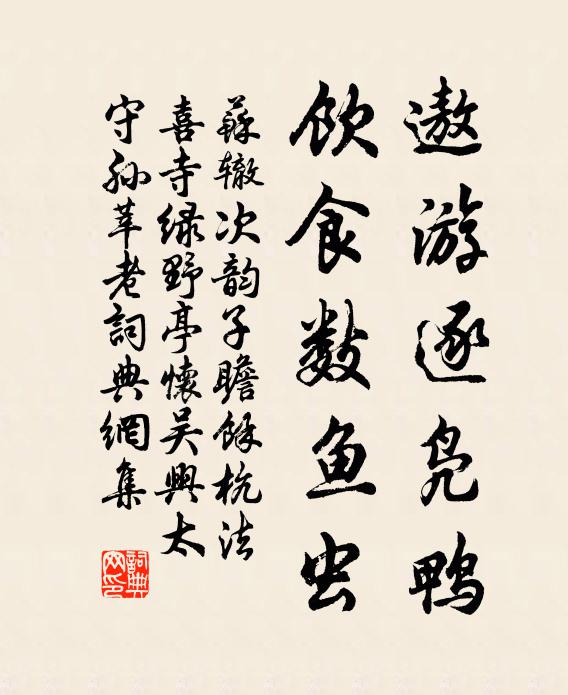 遨游逐凫鸭
饮食数鱼虫
蘇辙次韵子瞻馀杭法
喜寺绿野亭懷吴興太
守孙莘老詞典網集
詞典网印